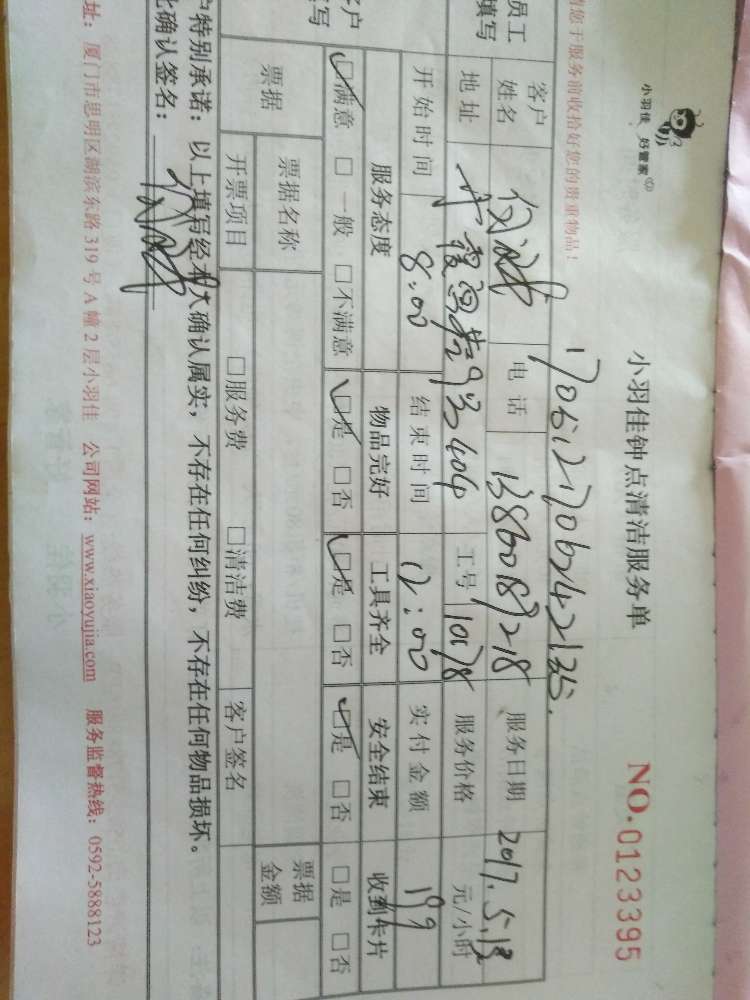 小羽佳 好管家
小羽佳钟点清洁服务单
NO.0123395
请您于服务前收拾好您的贵重物品！
员工
填写
客户
姓名
电话
服务日期 2017.5.18
地址
工号
服务价格 元/小时
开始时间 8:00 结束时间 12:00 实付金额 199
客户
填写
服务态度 物品完好 工具齐全 安全结束 收到卡片
☑满意 □一般 □不满意 ☑是 □否 ☑是 □否 ☑是 □否 □是 □否
票据
票据名称
票据
金额
开票项目 □服务费 □清洁费 客户签名
户特别承诺：以上填写经本人确认属实，不存在任何纠纷，不存在任何物品损坏。
此确认签名：
址：厦门市思明区湖滨东路 319 号 A 幢 2 层小羽佳 公司网站：www.xiaoyujia.com 服务监督热线：0592-5888123